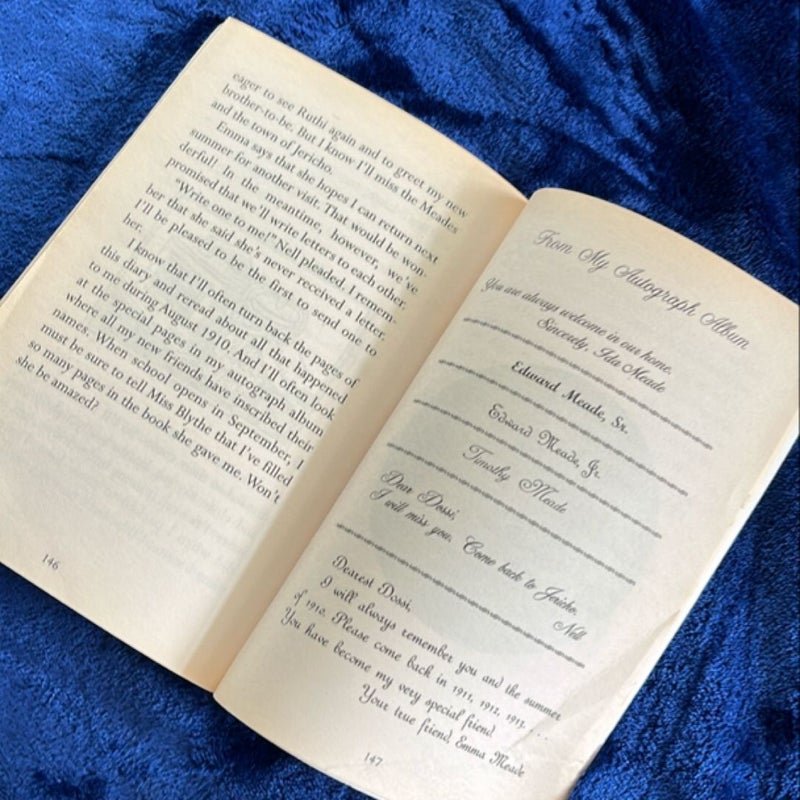 eager to see Ruthi again and to greet my new
brother-to-be. But I know I'll miss the Meades
and the town of Jericho.
Emma says that she hopes I can return next
summer for another visit. That would be won-
derful! In the meantime, however, we've
promised that we'll write letters to each other.
"Write one to me!" Nell pleaded. I remem-
ber that she said she's never received a letter.
I'll be pleased to be the first to send one to
her.
I know that I'll often turn back the pages of
this diary and reread about all that happened
to me during August 1910. And I'll often look
at the special pages in my autograph album
where all my new friends have inscribed their
names. When school opens in September, I
must be sure to tell Miss Blythe that I've filled
so many pages in the book she gave me. Won't
she be amazed?
146
From My Autograph Album
You are always welcome in our home.
Sincerely, Ida Meade
Edward Meade, Sr.
Edward Meade, Jr.
Timothy Meade
Dear Dossi,
I will miss you. Come back to Jericho.
Nell
Dearest Dossi,
I will always remember you and the summer
of 1910. Please come back in 1911, 1912, 1913. . . .
You have become my very special friend.
Your true friend, Emma Meade
147